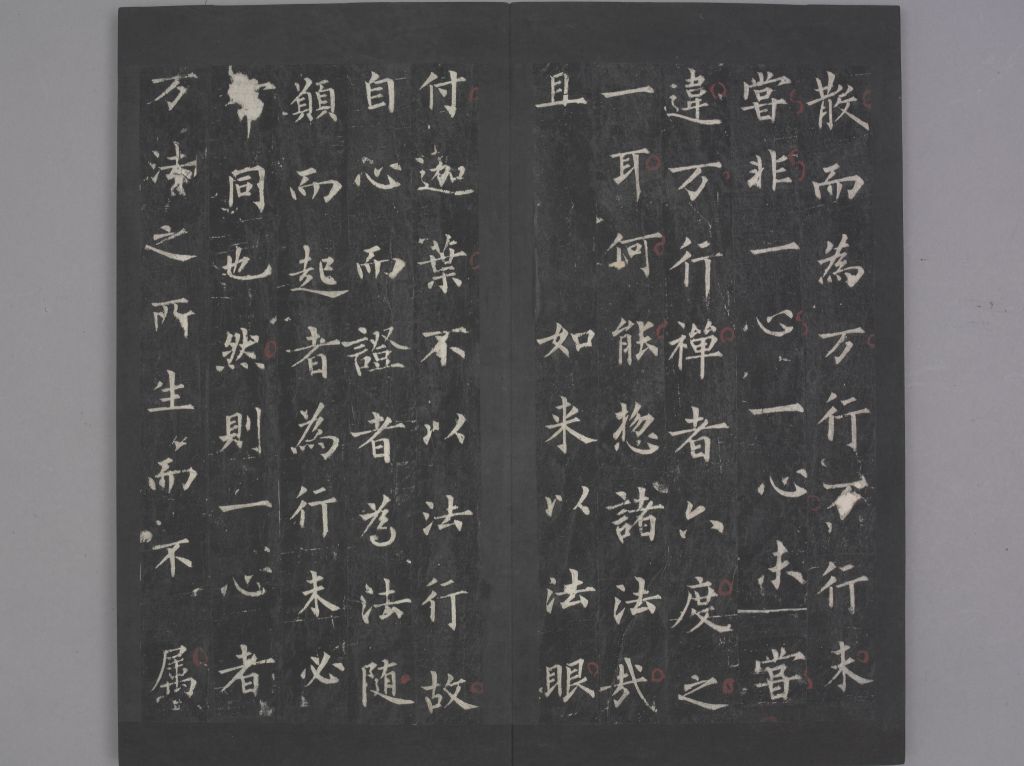 散而為万行万行未
嘗非一心一心未嘗
違万行禪者六度之
一耳何能惣諸法㢤
且如来以法眼
付迦葉不以法行故
自心而證者為法随
願而起者為行未必
同也然則一心者
万法之所生而不属